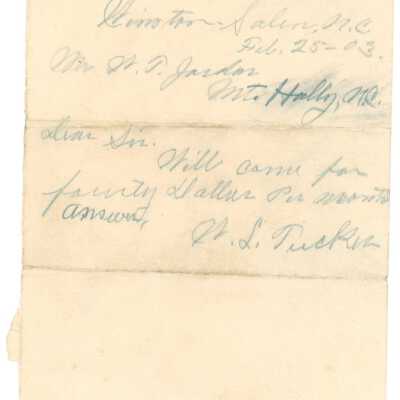 Winston-Salem, N.C
Feb. 25-03.
Mr W. T. Jordan
Mt. Holly, N.C.
Dear Sir.
Will come for
fourty Dollars Per month
answer,
W. L. Tucker